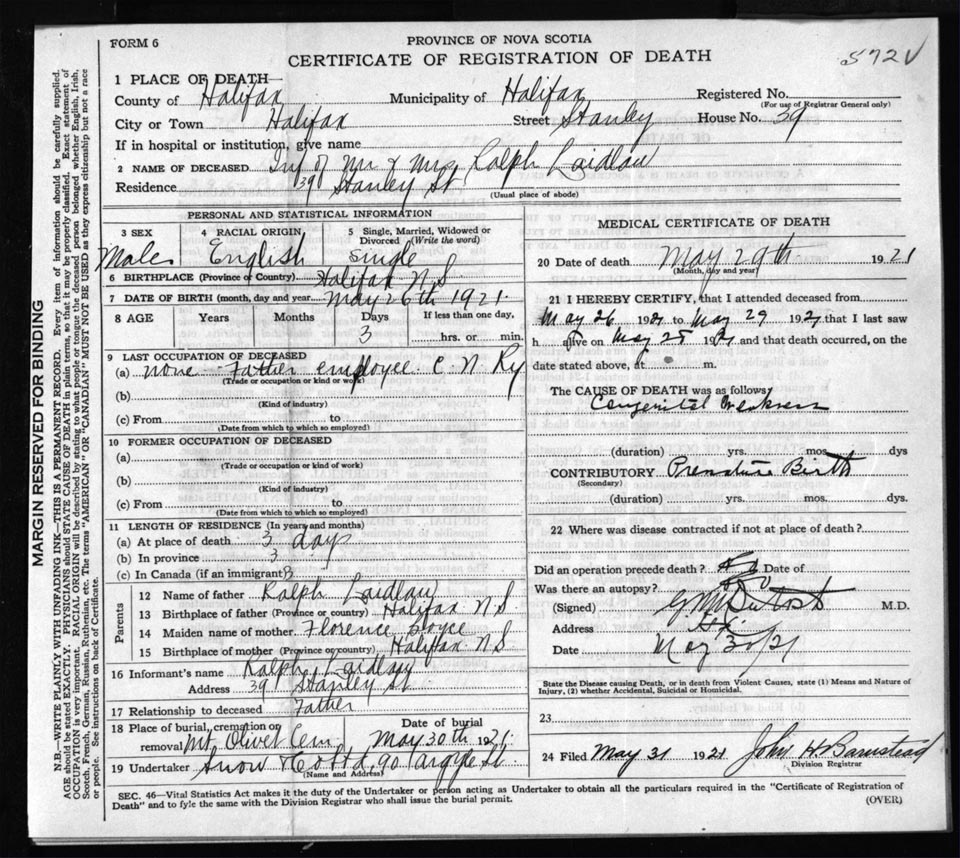 FORM 6
PROVINCE OF NOVA SCOTIA
CERTIFICATE OF REGISTRATION OF DEATH
572
1 PLACE OF DEATH
County of Halifax Municipality of Halifax Registered No.
(For use of Registrar General only)
City or Town Halifax Street Stanley House No. 39
If in hospital or institution, give name
2 NAME OF DECEASED Inf of Mr & Mrs Ralph Laidlaw
Residence 39 Stanley St
(Usual place of abode)
PERSONAL AND STATISTICAL INFORMATION
3 SEX 4 RACIAL ORIGIN 5 Single, Married, Widowed or Divorced (Write the word)
Male English Single
6 BIRTHPLACE (Province or Country) Halifax N.S.
7 DATE OF BIRTH (month, day and year) May 26th 1921
8 AGE Years Months Days If less than one day,
3 hrs. or min.
9 LAST OCCUPATION OF DECEASED
(a) none Father employee C. N. Ry
(Trade or occupation or kind of work)
(b)
(Kind of industry)
(c) From to
(Date from which to which so employed)
10 FORMER OCCUPATION OF DECEASED
(a)
(Trade or occupation or kind of work)
(b)
(Kind of industry)
(c) From to
(Date from which to which so employed)
11 LENGTH OF RESIDENCE (In years and months)
(a) At place of death 3 days
(b) In province 3
(c) In Canada (if an immigrant) 3
Parents
12 Name of father Ralph Laidlaw
13 Birthplace of father (Province or country) Halifax N.S.
14 Maiden name of mother Florence Joyce
15 Birthplace of mother (Province or country) Halifax N.S.
16 Informant's name Ralph Laidlaw
Address 39 Stanley St
17 Relationship to deceased Father
18 Place of burial, cremation or removal Mt Olivet Cem Date of burial May 30th 1921
19 Undertaker Snow & Co Ltd, 90 Argyle St.
(Name and Address)
MEDICAL CERTIFICATE OF DEATH
20 Date of death May 29th 1921
(Month, day and year)
21 I HEREBY CERTIFY, that I attended deceased from
May 26 1921 to May 29 1921 that I last saw
h alive on May 28 1921 and that death occurred, on the
date stated above, at m.
The CAUSE OF DEATH was as follows:
Congenital Weakness
(duration) yrs. mos. dys
CONTRIBUTORY Premature Birth
(Secondary)
(duration) yrs. mos. dys.
22 Where was disease contracted if not at place of death?
Did an operation precede death? No Date of
Was there an autopsy? No
(Signed) M.D.
Address Hx
Date May 30/21
State the Disease causing Death, or in death from Violent Causes, state (1) Means and Nature of
Injury, (2) whether Accidental, Suicidal or Homicidal.
23
24 Filed May 31 1921 John H Barnstead
Division Registrar
SEC. 46—Vital Statistics Act makes it the duty of the Undertaker or person acting as Undertaker to obtain all the particulars required in the "Certificate of Registration of
Death" and to fyle the same with the Division Registrar who shall issue the burial permit.
(OVER)
MARGIN RESERVED FOR BINDING
N.B.—WRITE PLAINLY WITH UNFADING INK—THIS IS A PERMANENT RECORD. Every item of information should be carefully supplied.
AGE should be stated EXACTLY. PHYSICIANS should STATE CAUSE OF DEATH in plain terms, so that it may be properly classified. Exact statement of
OCCUPATION is very important. RACIAL ORIGIN will be described by stating to what people or tongue the deceased person belonged whether English, Irish,
Scotch, French, German, Russian, Ruthenian, etc. The terms "AMERICAN" OR "CANADIAN" MUST NOT BE USED as they express citizenship but not a race
or people. See instructions on back of Certificate.